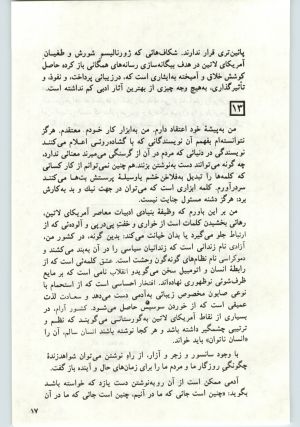 پائین‌تری قرار ندارند. شکاف‌هائی که ژورنالیسم شورش و طغیان
آمریکای لاتین در هدف بیگانه‌سازی رسانه‌های همگانی باز کرده حاصل
کوشش خلاق و آمیخته به‌ایثاری است که، در زیبائی پرداخت، و نفوذ، و
تأثیرگذاری، به‌هیچ وجه چیزی از بهترین آثار ادبی کم نداشته است.
۱۳
من به‌پیشهٔ خود اعتقاد دارم. من به‌ابزار کار خودم معتقدم. هرگز
نتوانسته‌ام بفهمم آن نویسندگانی که با گشاده‌روئی اعلام می‌کنند
نویسندگی در دنیائی که مردم در آن از گرسنگی می‌میرند معنائی ندارد،
چه گونه می‌توانند دست به‌نوشتن بزنند. هم چنین نمی‌توانم از کار کسانی
که کلمه‌ها را تبدیل به‌فلاخن خشم یا وسیلهٔ پرستش بت‌ها می‌کنند
سردرآورم. کلمه ابزاری است که می‌توان در جهت نیک و بد به‌کارش
برد: هرگز دشنه مسئول جنایت نیست.
من بر این باورم که وظیفهٔ بنیادی ادبیات معاصر آمریکای لاتین،
رهائی بخشیدن کلمات است از خواری و خفتِ پی‌درپی و آلوده‌ئی که از
ارتباط جلو می‌گیرد یا بدان خیانت می‌کند: بدین گونه، در کشور من،
آزادی نام زندانی است که زندانیان سیاسی را در آن به‌بند می‌کشند و
دموکراسی نام نظام‌های گونه‌گون وحشت است. عشق کلمه‌ئی است که از
رابطهٔ انسان و اتومبیل سخن می‌گوید و انقلاب نامی است که بر مایع
ظرف‌شوئی نوظهوری نهاده‌اند. افتخار احساسی است که از استحمام با
نوعی صابون مخصوص زیبائی به‌آدمی دست می‌دهد و سعادت لذت
عمیقی است که از خوردن سوسیس حاصل می‌شود. کشور آرام، در
بسیاری از نقاط آمریکای لاتین به‌گورستانی می‌گویند که نظم و
ترتیبی چشمگیر داشته باشد و هر کجا نوشته باشند انسان سالم، آن را
«انسان ناتوان» باید خواند.
با وجود سانسور و زجر و آزار، از راهِ نوشتن می‌توان شواهدزندهٔ
چگونگی روزگار ما و مردم ما را برای زمان‌های حال و آینده باز گفت.
آدمی ممکن است از آن رو به‌نوشتن دست یازد که خواسته باشد
بگوید: «چنین است جائی که ما در آنیم، چنین است جائی که ما در آن
۱۷